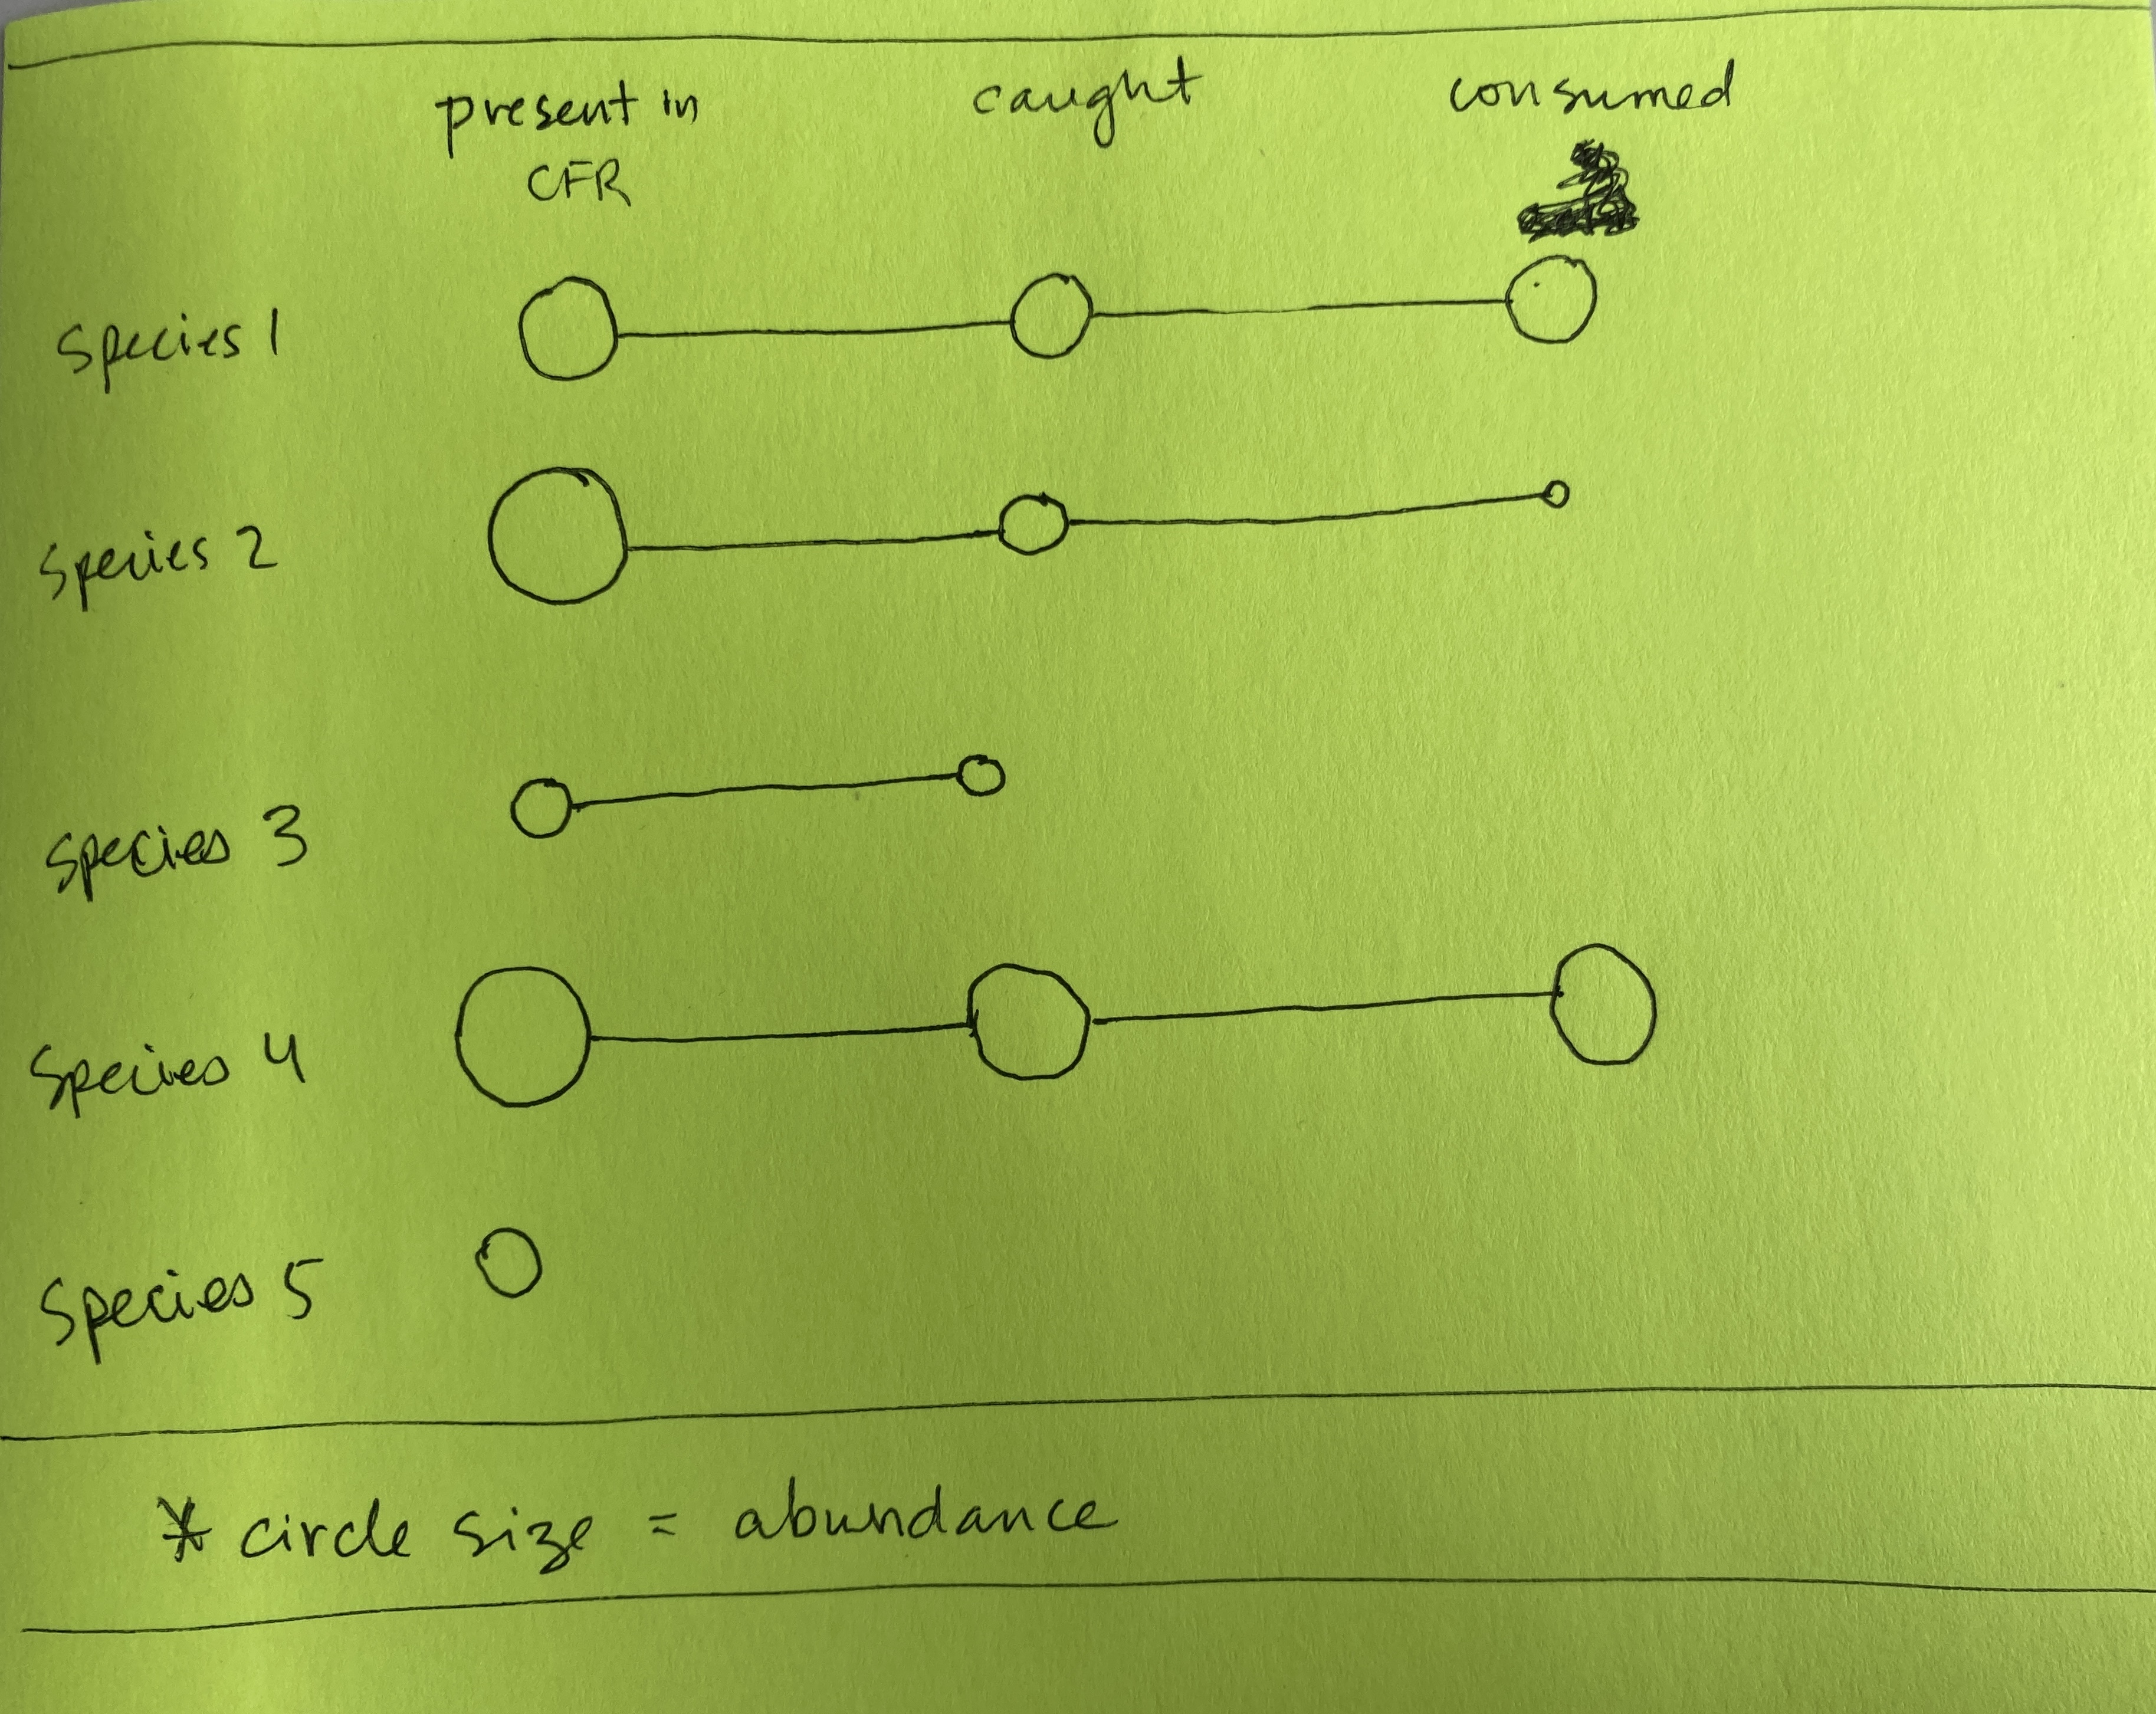 present in caught consumed
CFR
Species 1
Species 2
Species 3
Species 4
Species 5
* circle size = abundance